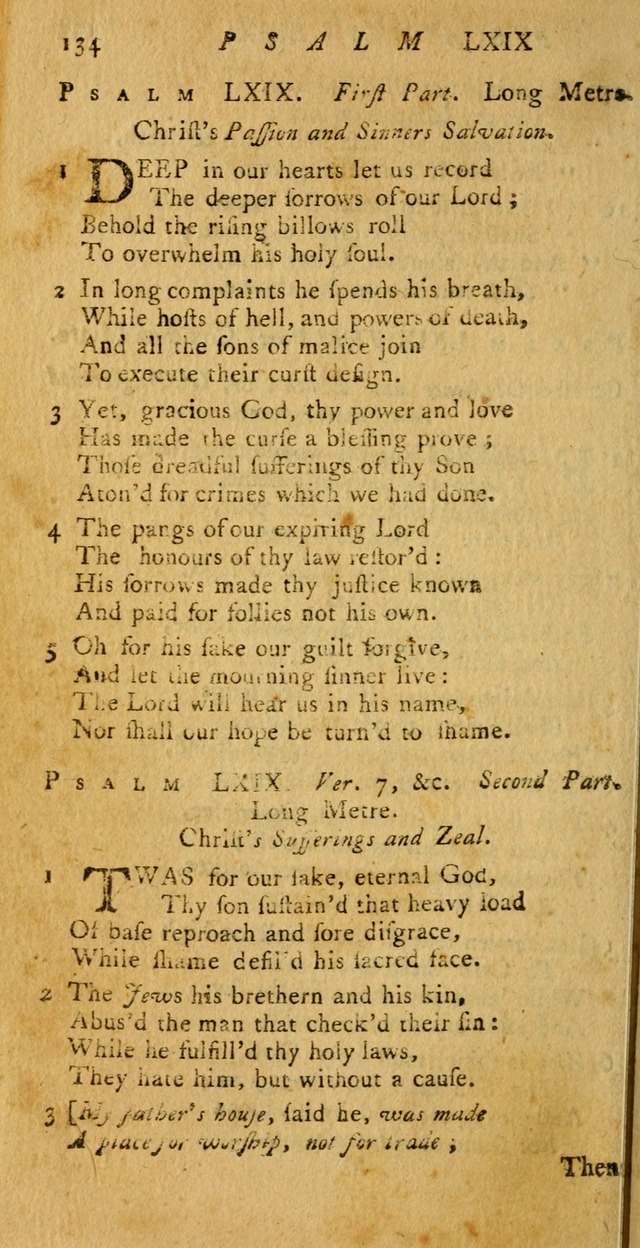 134 P S A L M LXIX
P S A L M LXIX. Firſt Part. Long Metre.
Chriſt's Paſſion and Sinners Salvation.
1 DEEP in our hearts let us record
The deeper ſorrows of our Lord ;
Behold the riſing billows roll
To overwhelm his holy ſoul.
2 In long complaints he ſpends his breath,
While hoſts of hell, and powers of death,
And all the ſons of malice join
To execute their curſt deſign.
3 Yet, gracious God, thy power and love
Has made the curſe a bleſſing prove ;
Thoſe dreadful ſufferings of thy Son
Aton'd for crimes which we had done.
4 The pangs of our expiring Lord
The honours of thy law reſtor'd :
His ſorrows made thy juſtice known
And paid for follies not his own.
5 Oh for his ſake our guilt forgive,
And let the mourning ſinner live :
The Lord will hear us in his name,
Nor ſhall our hope be turn'd to ſhame.
P S A L M LXIX. Ver. 7, &c. Second Part.
Long Metre.
Chriſt's Sufferings and Zeal.
1 TWAS for our ſake, eternal God,
Thy ſon ſuſtain'd that heavy load
Of baſe reproach and ſore diſgrace,
While ſhame defil'd his ſacred face.
2 The Jews his brethern and his kin,
Abus'd the man that check'd their ſin :
While he fulfill'd thy holy laws,
They hate him, but without a cauſe.
3 [My father's houſe, ſaid he, was made
A place for worſhip, not for trade ;
Then